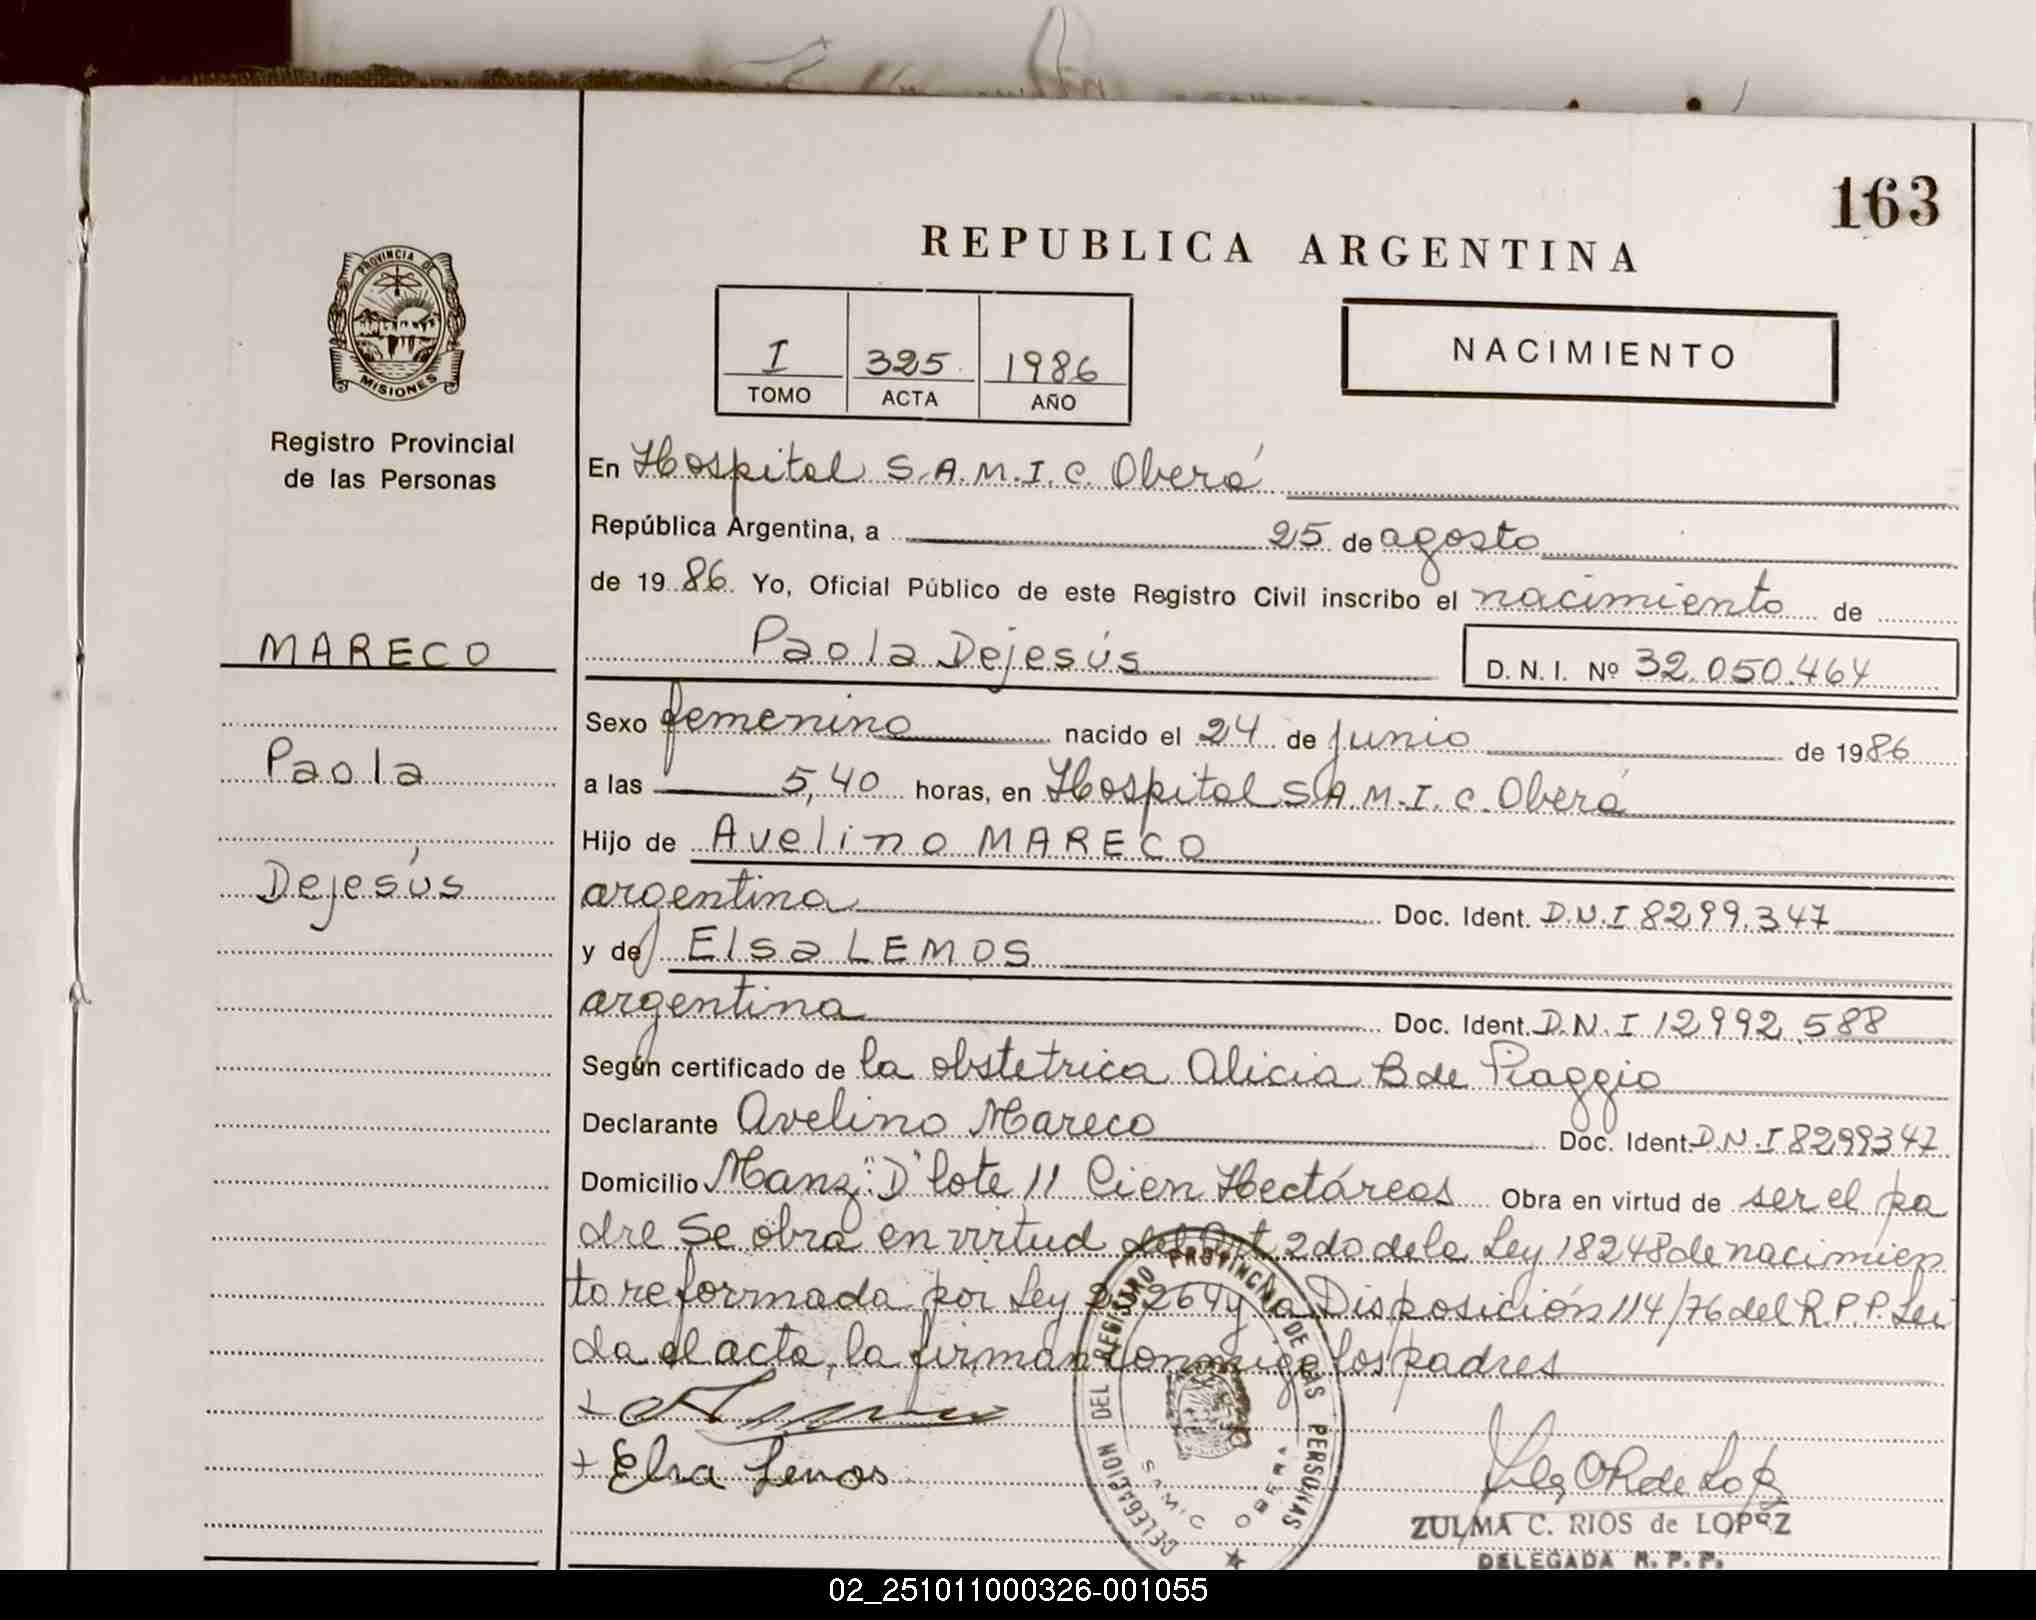 163
REPUBLICA ARGENTINA
PROVINCIA DE
MISIONES
Registro Provincial
de las Personas
I 325 1986
TOMO ACTA AÑO
NACIMIENTO
En Hospital S.A.M.I.C. Oberá
República Argentina, a 25 de agosto
de 1986 Yo, Oficial Público de este Registro Civil inscribo el nacimiento de
MARECO
Paola Dejesús D.N.I. Nº 32.050.464
Sexo femenino nacido el 24 de junio de 1986
Paola
a las 5,40 horas, en Hospital S.A.M.I.C. Oberá
Hijo de Avelino MARECO
Dejesús
argentina Doc. Ident. D.N.I 8299.347
y de Elsa LEMOS
argentina Doc. Ident. D.N.I 12992.588
Según certificado de la obstetrica Alicia B de Piaggio
Declarante Avelino Mareco Doc. Ident. D.N.I 8299347
Domicilio Manz "D" lote 11 Cien Hectáreas Obra en virtud de ser el pa
dre Se obra en virtud del Art 2do de la Ley 18248 de nacimien
to reformada por Ley y la Disposición 114/76 del R.P.P. Lei
da el acta, la firman conmigo los padres
+ Elsa Lemos
DELEGACION DEL REGISTRO PROVINCIAL DE LAS PERSONAS
SAMIC OBERA
ZULMA C. RIOS de LOPEZ
DELEGADA R.P.P.
02_251011000326-001055